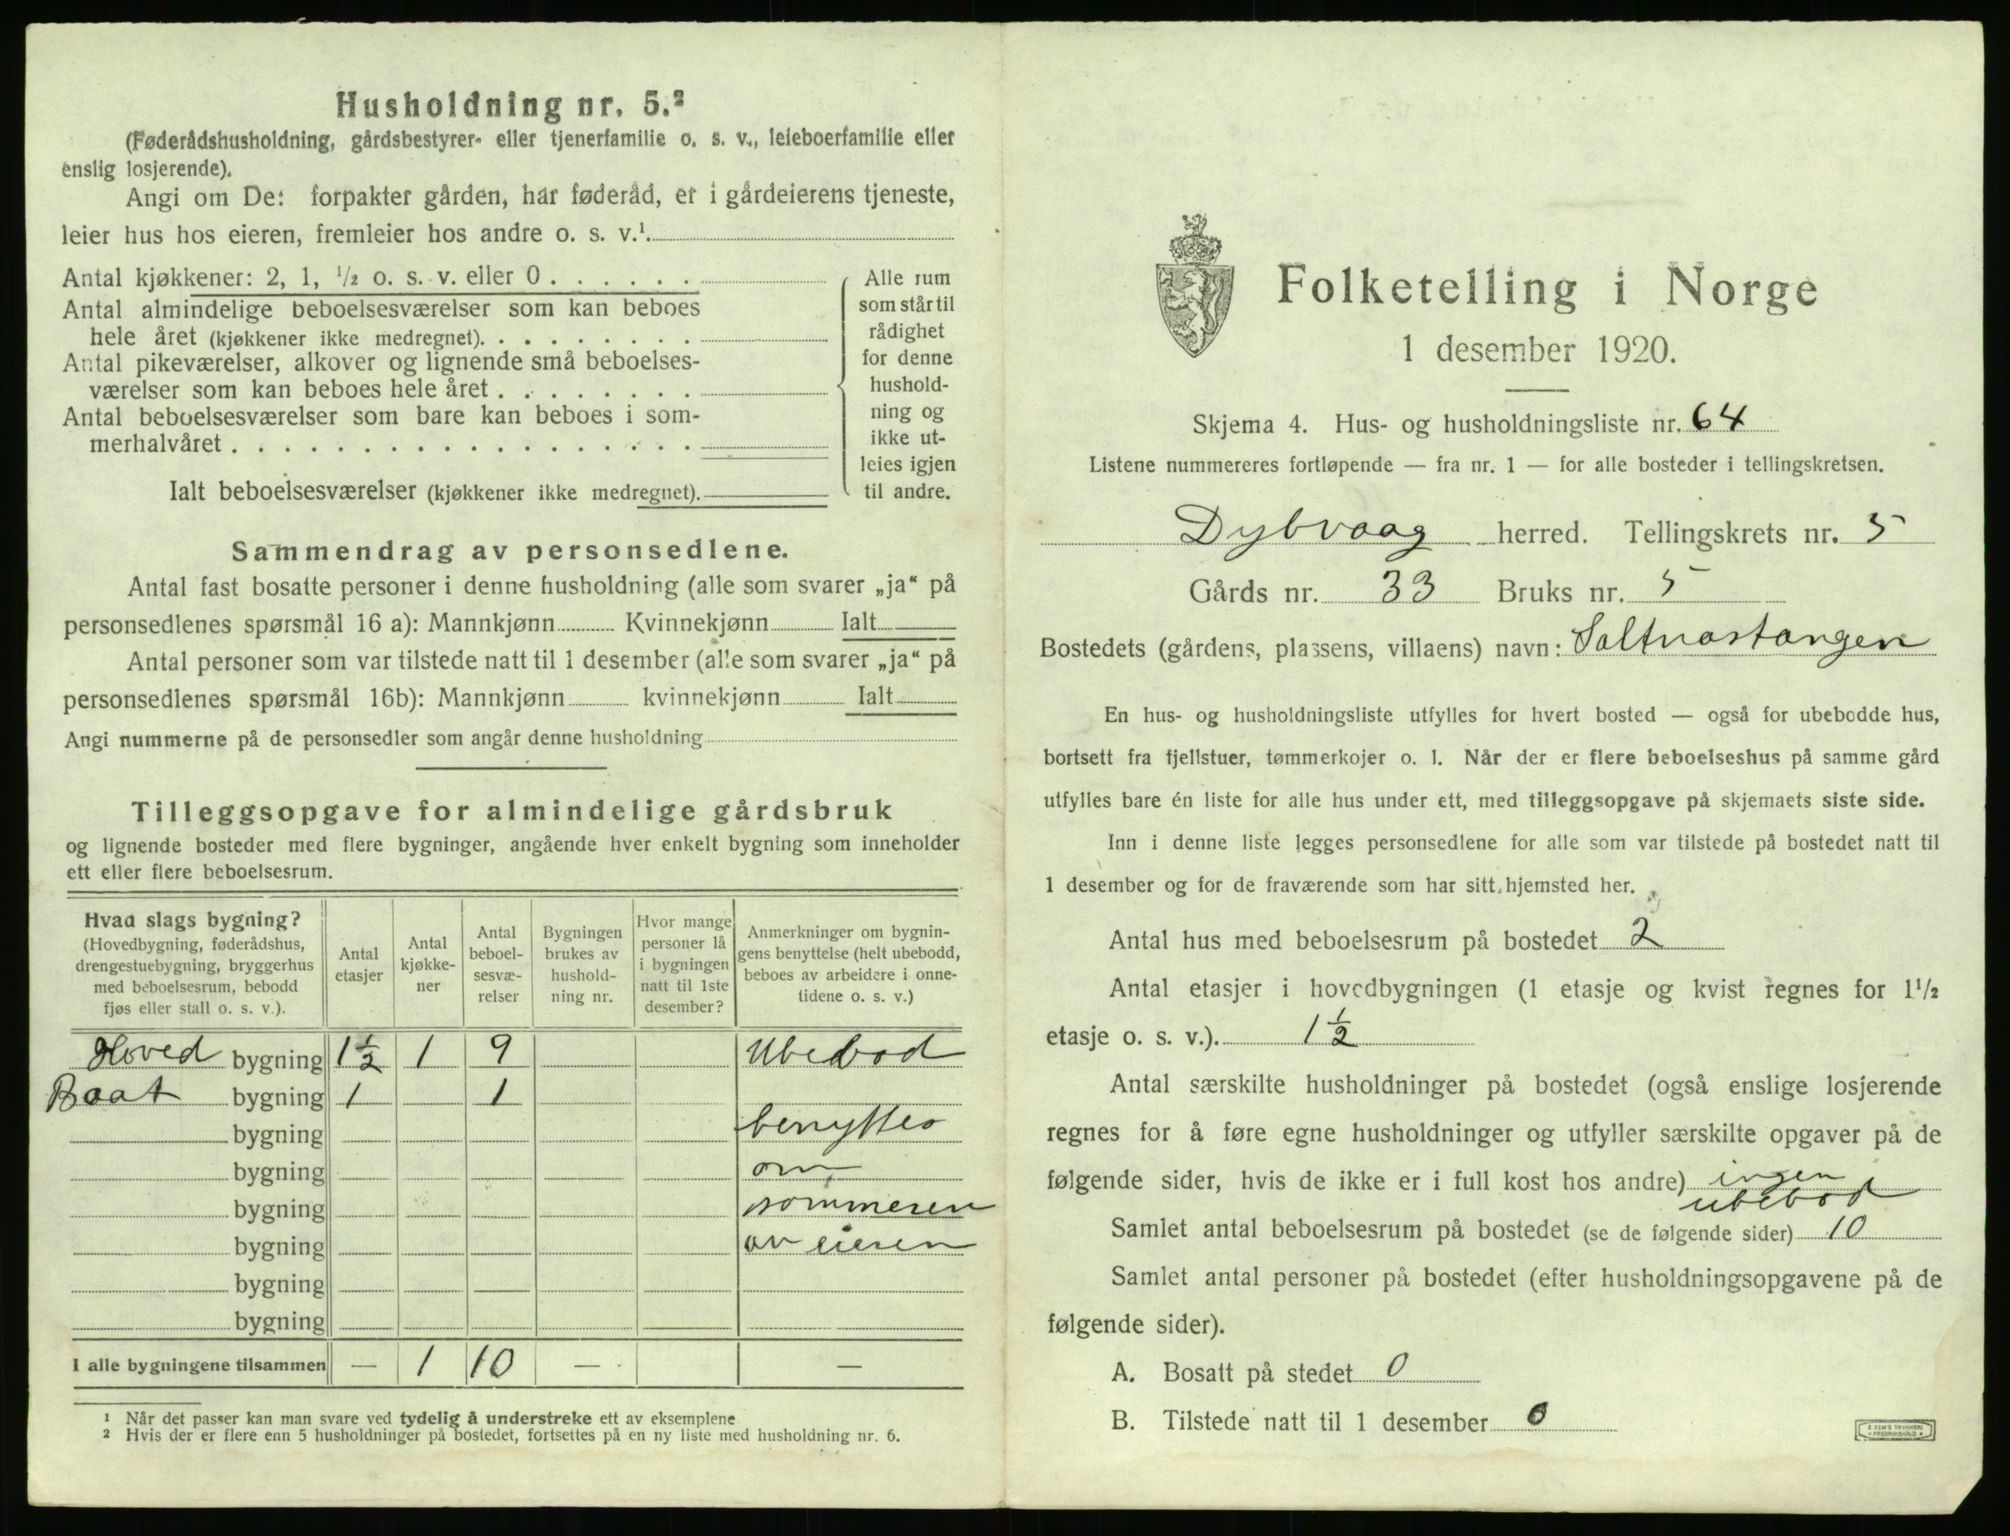 Husholdning nr. 5.²
(Føderådshusholdning, gårdsbestyrer- eller tjenerfamilie o. s. v., leieboerfamilie eller
enslig losjerende).
Angi om De: forpakter gården, har føderåd, er i gårdeierens tjeneste,
leier hus hos eieren, fremleier hos andre o. s. v.¹
Antal kjøkkener: 2, 1, ½ o. s. v. eller 0 . . . . . .
Antal almindelige beboelsesværelser som kan beboes
hele året (kjøkkener ikke medregnet). . . . . . . . .
Antal pikeværelser, alkover og lignende små beboelses-
værelser som kan beboes hele året . . . . . . . .
Antal beboelsesværelser som bare kan beboes i som-
merhalvåret . . . . . . . . . . . . . . . . . .
Ialt beboelsesværelser (kjøkkener ikke medregnet).
Alle rum
som står til
rådighet
for denne
hushold-
ning og
ikke ut-
leies igjen
til andre.
Sammendrag av personsedlene.
Antal fast bosatte personer i denne husholdning (alle som svarer „ja“ på
personsedlenes spørsmål 16 a): Mannkjønn Kvinnekjønn Ialt
Antal personer som var tilstede natt til 1 desember (alle som svarer „ja“ på
personsedlenes spørsmål 16b): Mannkjønn kvinnekjønn Ialt
Angi nummerne på de personsedler som angår denne husholdning
Tilleggsopgave for almindelige gårdsbruk
og lignende bosteder med flere bygninger, angående hver enkelt bygning som inneholder
ett eller flere beboelsesrum.
Hvad slags bygning?
(Hovedbygning, føderådshus,
drengestuebygning, bryggerhus
med beboelsesrum, bebodd
fjøs eller stall o. s. v.).
Antal
etasjer
Antal
kjøkke-
ner
Antal
beboel-
sesvæ-
relser
Bygningen
brukes av
hushold-
ning nr.
Hvor mange
personer lå
i bygningen
natt til 1ste
desember?
Anmerkninger om bygnin-
gens benyttelse (helt ubebodd,
beboes av arbeidere i onne-
tidene o. s. v.)
Hoved bygning 1½ 1 9 Ubebod
Baat bygning 1 1
bygning benyttes
bygning om
bygning sommeren
bygning av eieren
bygning
bygning
I alle bygningene tilsammen — 1 10 — —
¹ Når det passer kan man svare ved tydelig å understreke ett av eksemplene
² Hvis der er flere enn 5 husholdninger på bostedet, fortsettes på en ny liste med husholdning nr. 6.
Folketelling i Norge
1 desember 1920.
Skjema 4. Hus- og husholdningsliste nr. 64
Listene nummereres fortløpende — fra nr. 1 — for alle bosteder i tellingskretsen.
Dybvaag herred. Tellingskrets nr. 5
Gårds nr. 33 Bruks nr. 5
Bostedets (gårdens, plassens, villaens) navn: Saltnastangen
En hus- og husholdningsliste utfylles for hvert bosted — også for ubebodde hus,
bortsett fra fjellstuer, tømmerkojer o. l. Når der er flere beboelseshus på samme gård
utfylles bare én liste for alle hus under ett, med tilleggsopgave på skjemaets siste side.
Inn i denne liste legges personsedlene for alle som var tilstede på bostedet natt til
1 desember og for de fraværende som har sitt hjemsted her.
Antal hus med beboelsesrum på bostedet 2
Antal etasjer i hovedbygningen (1 etasje og kvist regnes for 1½
etasje o. s. v.). 1½
Antal særskilte husholdninger på bostedet (også enslige losjerende
regnes for å føre egne husholdninger og utfyller særskilte opgaver på de
følgende sider, hvis de ikke er i full kost hos andre) ingen
ubebod
Samlet antal beboelsesrum på bostedet (se de følgende sider) 10
Samlet antal personer på bostedet (efter husholdningsopgavene på de
følgende sider).
A. Bosatt på stedet 0
B. Tilstede natt til 1 desember 0